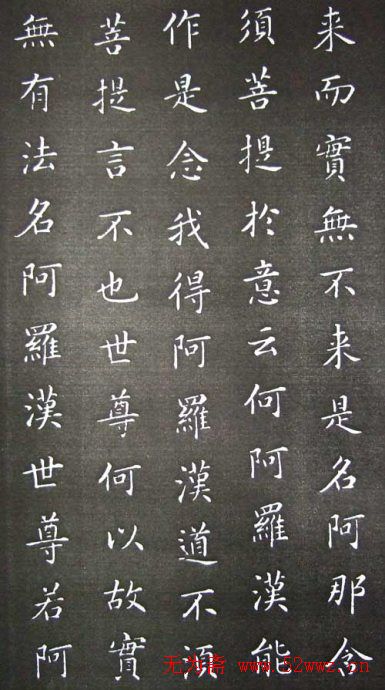 来而實無不来是名阿那含
須菩提扵意云何阿羅漢能
作是念我得阿羅漢道不須
菩提言不也世尊何以故實
無有法名阿羅漢世尊若阿
无为斋 www.52wwz.cn